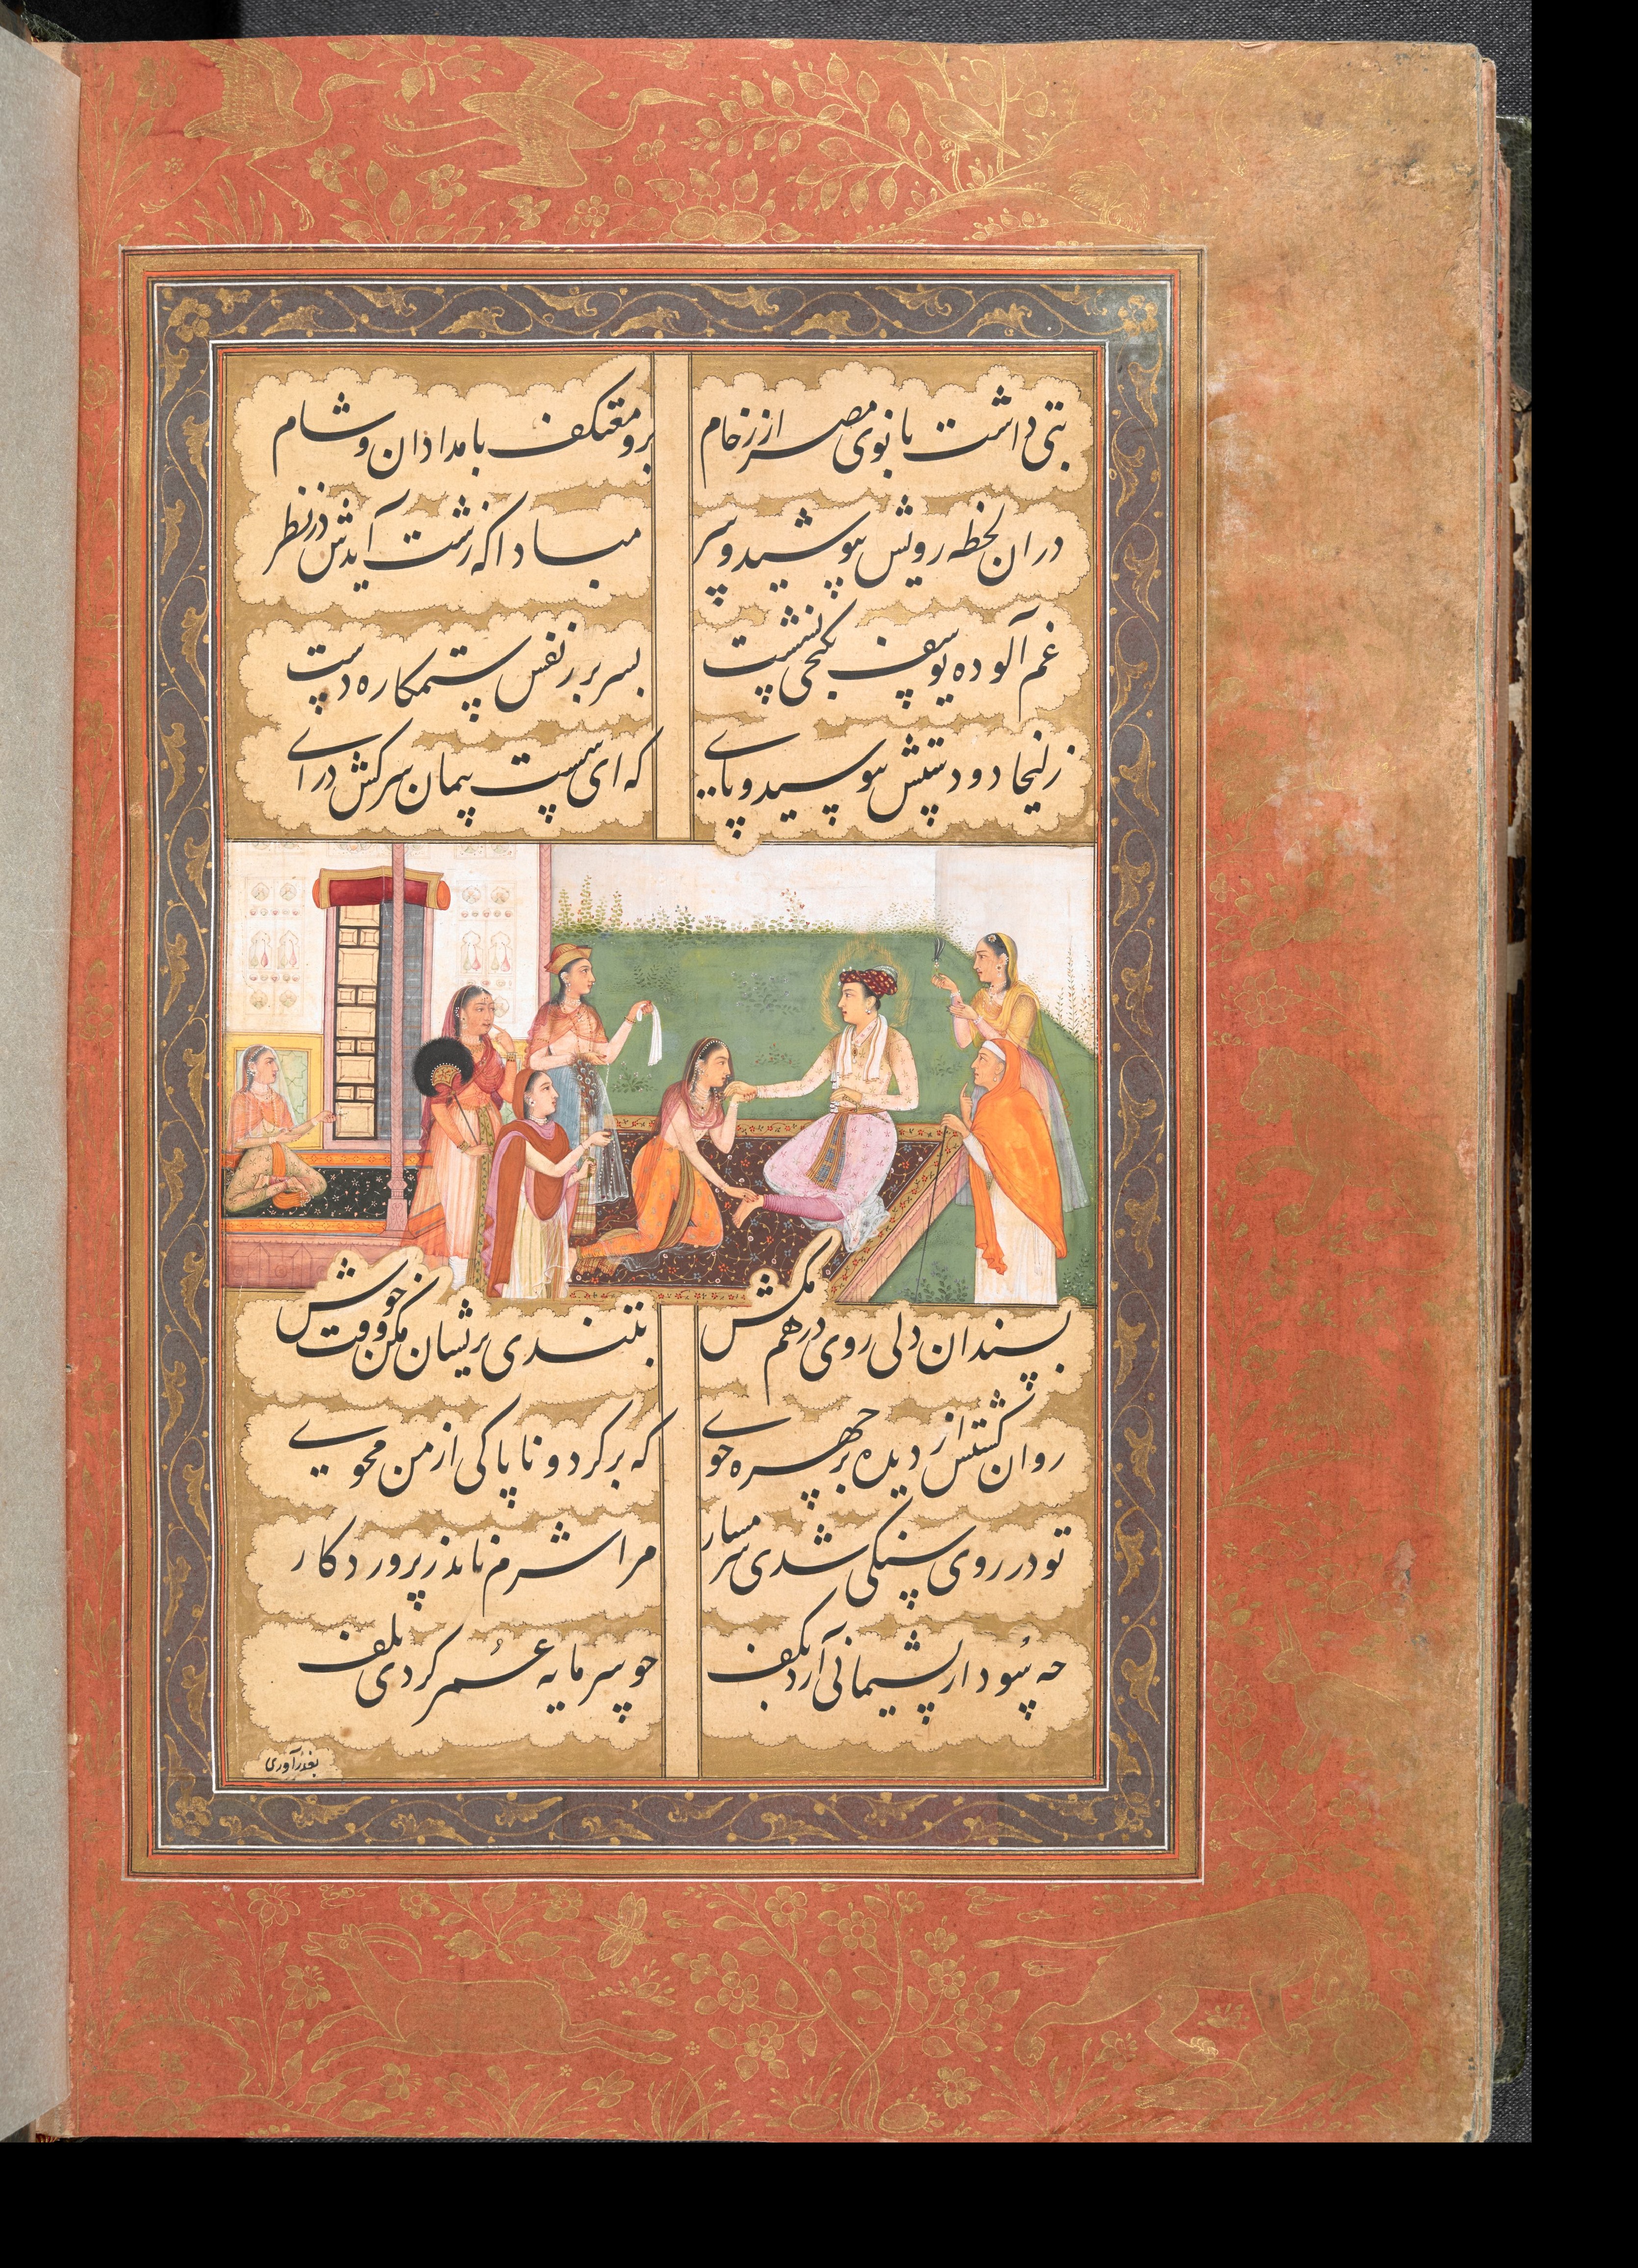 بتی داشت بانوی مصر از رخام برو معتکف بامدادان و شام
دران لحظه رویش بپوشید و سر مبادا که زشت آیدش در نظر
غم آلوده یوسف بکنجی نشست بسر بر ز نفس ستمکاره دست
زلیخا دو دستش ببوسید و پای که ای سست پیمان سرکش درای
بسندان دلی روی درهم مکش بتندی پریشان مکن وقت خوش
روان گشتش از دیده بر چهره جوی که برگرد و ناپاکی از من مجوی
تو در روی سنگی شدی شرمسار مرا شرم ناید ز پروردگار
چه سود از پشیمانی آرد بکف چو سرمایه عمر کردی تلف